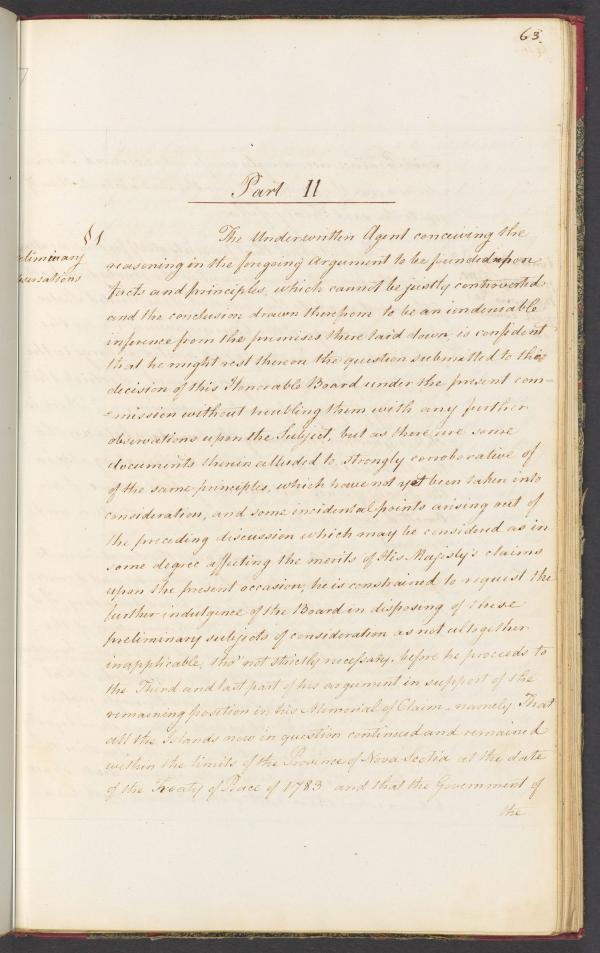 63.
Part II
§1
eliminary
bservations
The Underwritten Agent conceiving the
reasoning in the foregoing Argument to be founded upon
facts and principles, which cannot be justly controverted
and the conclusion drawn therefrom to be an undeniable
inference from the premises there laid down, is confident
that he might rest thereon the question submitted to the
decision of this Honorable Board under the present com-
-mission without troubling them with any further
observations upon the Subject, but as there are some
documents therein alluded to, strongly corroborative of
of the same principles, which have not yet been taken into
consideration, and some incidental points arising out of
the preceding discussion which may be considered as in
some degree affecting the merits of His Majesty's claims
upon the present occasion, he is constrained to request the
further indulgence of the Board in disposing of these
preliminary subjects of consideration as not altogether
inapplicable, tho' not strictly necessary, before he proceeds to
the Third and last part of his argument in support of the
remaining position in his Memorial of Claim, namely That
all the Islands now in question continued and remained
within the limits of the Province of Nova Scotia at the date
of the Treaty of Peace of 1783 and that the Government of
the